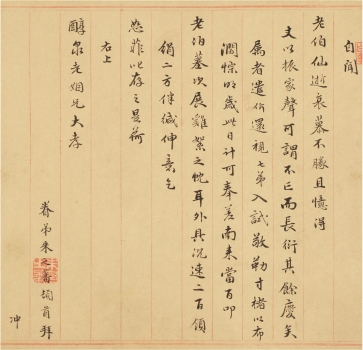 自闻
老伯仙逝哀慕不朦且憶得
文以振家聲可謂不亡而長衍其餘慶矣
属者遣伻還視七弟入試敬勒寸楮以布
濶悰明歲此日計可奉差南来當百叩
老伯墓次展雞絮之忱耳外具沉速二百領
絹二方伴緘伸意乞
恕菲此存之是荷
右上
醇泉老姻兄大孝
眷弟朱之蕃頓首拜
冲